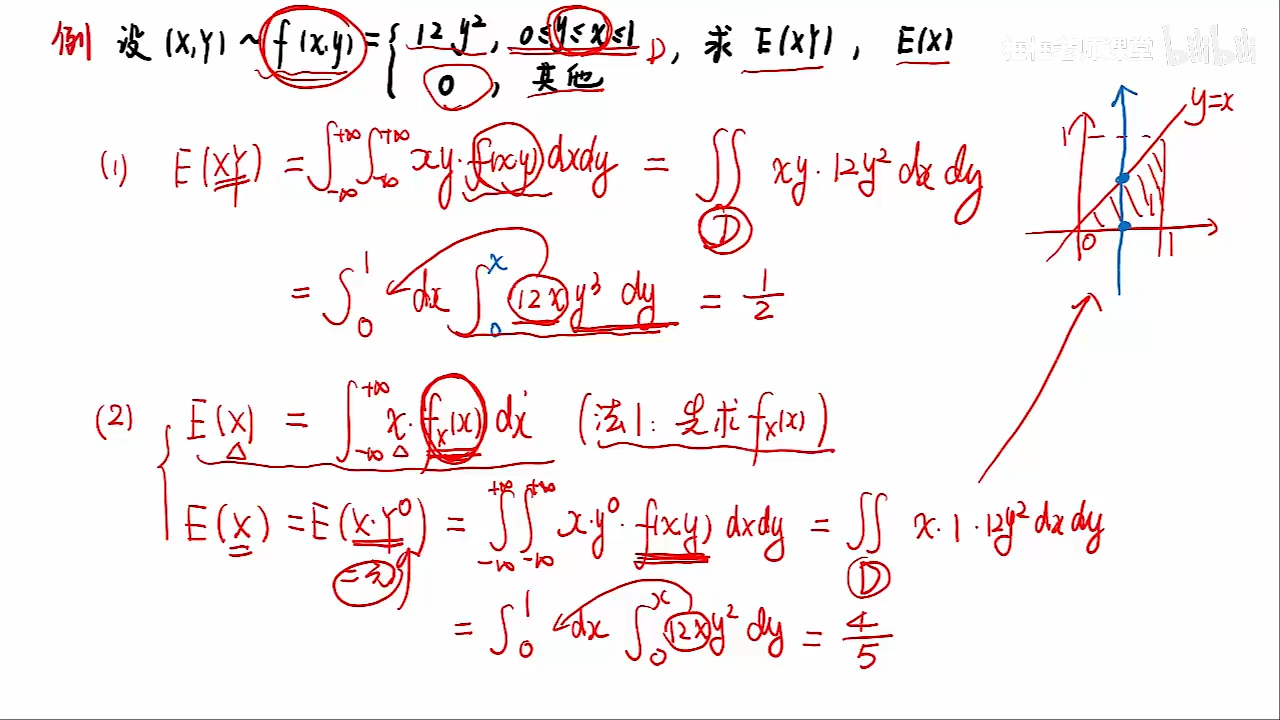 例 设 (X,Y) ~ f(x,y) = { 12y², 0≤y≤x≤1 D, 求 E(XY), E(X)
0, 其他
框框老师课堂 bilibili
y=x
1
0 1
(1) E(XY) = ∫_{-∞}^{+∞}∫_{-∞}^{+∞} xy·f(x,y)dxdy = ∬_D xy·12y² dx dy
= ∫_0^1 dx ∫_0^x 12x y³ dy = 1/2
(2) E(X) = ∫_{-∞}^{+∞} x·f_X(x) dx (法1: 先求 f_X(x))
E(X) = E(X·Y⁰) = ∫_{-∞}^{+∞}∫_{-∞}^{+∞} x·y⁰·f(x,y) dxdy = ∬_D x·1·12y² dx dy
二元
= ∫_0^1 dx ∫_0^x 12x y² dy = 4/5